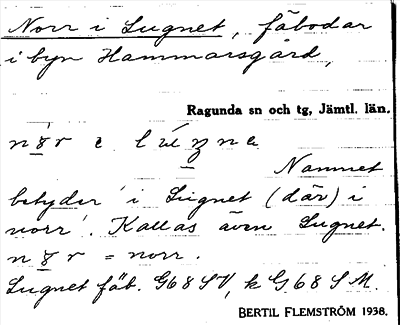 Norr i Lugnet, fäbodar
i byn Hammarsgård,
Ragunda sn och tg, Jämtl. län.
nɔr i lúgne
Namnet
betyder 'i Lugnet (där) i
norr'. Kallas även Lugnet.
= norr.
Lugnet fäb. G68SV, k G68SM.
BERTIL FLEMSTRÖM 1938.